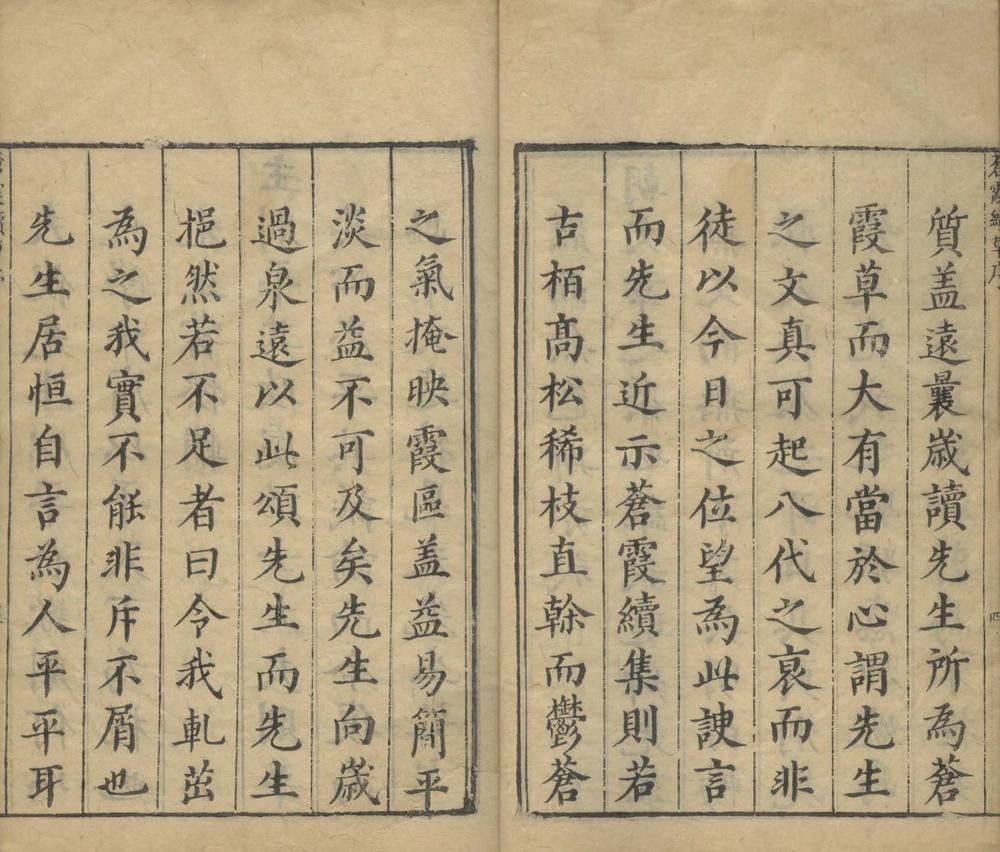 質盖遠曩歲讀先生所為蒼
霞草而大有當於心謂先生
之文真可起八代之衰而非
徒以今日之位望為此諛言
而先生近示蒼霞續集則若
古栢高松稀枝直榦而鬱蒼
之氣掩映霞區盖益易簡平
淡而益不可及矣先生向歲
過泉遠以此頌先生而先生
挹然若不足者曰令我軋茁
為之我實不能非斥不屑也
先生居恒自言為人平平耳